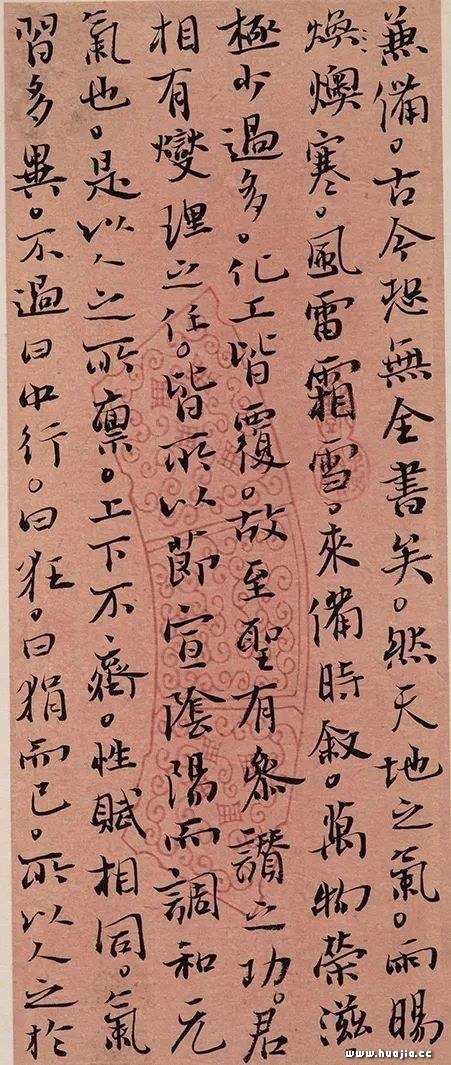 兼備。古今恐無全書矣。然天地之氣。雨暘
煥燠寒。風雷霜雪。來備時敘。萬物榮滋
極少過多。化工皆覆。故至聖有參讚之功。君
相有燮理之任。皆所以節宣陰陽而調和元
氣也。是以人之所稟。上下不齊。性賦相同。氣
習多異。不過曰中行。曰狂。曰狷而已。所以人之於
www.huajia.cc